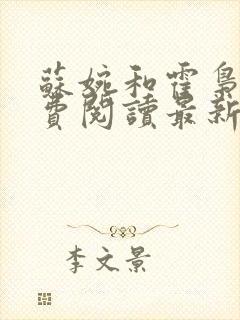 蘇婉和霍梟
費閱讀最新
李文景